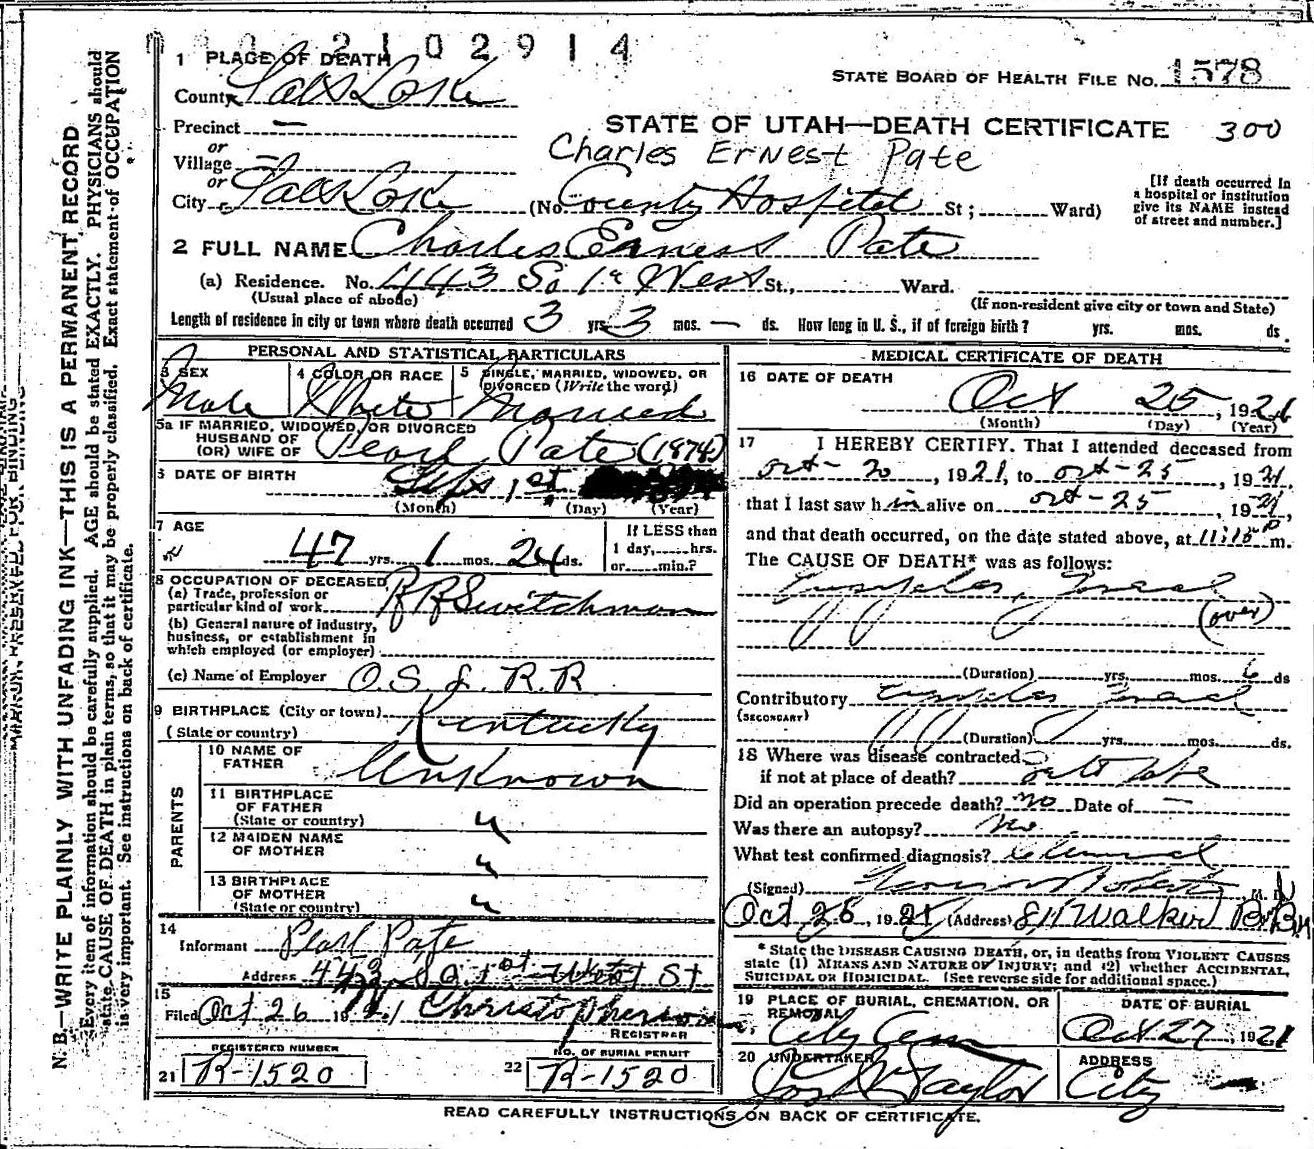 2102914
1 PLACE OF DEATH
STATE BOARD OF HEALTH FILE No. 1578
County Salt Lake
Precinct —
STATE OF UTAH—DEATH CERTIFICATE 300
or
Village —
Charles Ernest Pate
or
City Salt Lake (No. County Hospital St; Ward)
[If death occurred in a hospital or institution give its NAME instead of street and number.]
2 FULL NAME Charles Ernest Pate
(a) Residence. No. 443 So 1st West St., Ward.
(Usual place of abode) (If non-resident give city or town and State)
Length of residence in city or town where death occurred 3 yrs. 3 mos. — ds. How long in U. S., if of foreign birth? yrs. mos. ds.
PERSONAL AND STATISTICAL PARTICULARS
3 SEX
Male
4 COLOR OR RACE
White
5 SINGLE, MARRIED, WIDOWED, OR DIVORCED (Write the word)
Married
5a IF MARRIED, WIDOWED, OR DIVORCED
HUSBAND OF
(OR) WIFE OF Pearl Pate (1874)
6 DATE OF BIRTH Sept 1st
(Month) (Day) (Year)
7 AGE
47 yrs. 1 mos. 24 ds.
If LESS than
1 day, hrs.
or min.?
8 OCCUPATION OF DECEASED
(a) Trade, profession or
particular kind of work RR Switchman
(b) General nature of industry,
business, or establishment in
which employed (or employer)
(c) Name of Employer O.S.L. R.R
9 BIRTHPLACE (City or town)
(State or country) Kentucky
PARENTS
10 NAME OF
FATHER Unknown
11 BIRTHPLACE
OF FATHER
(State or country) "
12 MAIDEN NAME
OF MOTHER "
13 BIRTHPLACE
OF MOTHER
(State or country) "
14
Informant Pearl Pate
Address 443 So. 1st West St
15
Filed Oct 26 1921 Christopherson
REGISTRAR
REGISTERED NUMBER
21 R-1520
NO. OF BURIAL PERMIT
22 R-1520
MEDICAL CERTIFICATE OF DEATH
16 DATE OF DEATH
Oct 25, 1921
(Month) (Day) (Year)
17 I HEREBY CERTIFY. That I attended deceased from
Oct-20, 1921, to Oct-25, 1921,
that I last saw him alive on Oct-25, 1921,
and that death occurred, on the date stated above, at 11:15 p m.
The CAUSE OF DEATH* was as follows:
Erysipelas, Facial
(over)
(Duration) yrs. mos. 6 ds
Contributory Erysipelas Facial
(SECONDARY)
(Duration) yrs. mos. ds.
18 Where was disease contracted
if not at place of death? Salt Lake
Did an operation precede death? No Date of —
Was there an autopsy? No.
What test confirmed diagnosis? Clinical
(Signed) M. D.
Oct 26, 1921 (Address) E H Walker
* State the DISEASE CAUSING DEATH, or, in deaths from VIOLENT CAUSES
state (1) MEANS AND NATURE OF INJURY; and (2) whether ACCIDENTAL,
SUICIDAL OR HOMICIDAL. (See reverse side for additional space.)
19 PLACE OF BURIAL, CREMATION, OR
REMOVAL
City Cem
DATE OF BURIAL
Oct 27, 1921
20 UNDERTAKER
Taylor
ADDRESS
City
READ CAREFULLY INSTRUCTIONS ON BACK OF CERTIFICATE.
MARGIN RESERVED FOR BINDING
N. B.—WRITE PLAINLY WITH UNFADING INK—THIS IS A PERMANENT RECORD
Every item of information should be carefully supplied. AGE should be stated EXACTLY. PHYSICIANS should
state CAUSE OF DEATH in plain terms, so that it may be properly classified. Exact statement of OCCUPATION
is very important. See instructions on back of certificate.